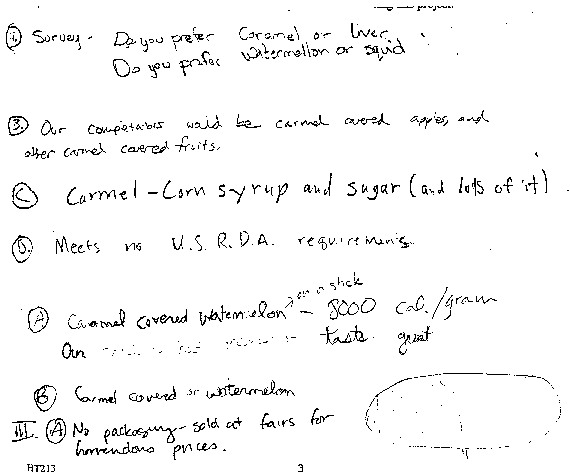 project
① Survey - Do you prefer Caramel or Liver
Do you prefer watermellon or squid
③. Our competators would be carmel covered apples, and
other carmel covered fruits.
Ⓒ Carmel - Corn syrup and sugar (and lots of it).
Ⓓ. Meets no U.S.R.D.A. requirements.
on a stick
Ⓐ Caramel covered watermelon - 8000 cal./gram
Our taste great
Ⓑ Carmel covered watermelon
III. Ⓐ No packaging - sold at fairs for
horrendous prices.
HT213 3